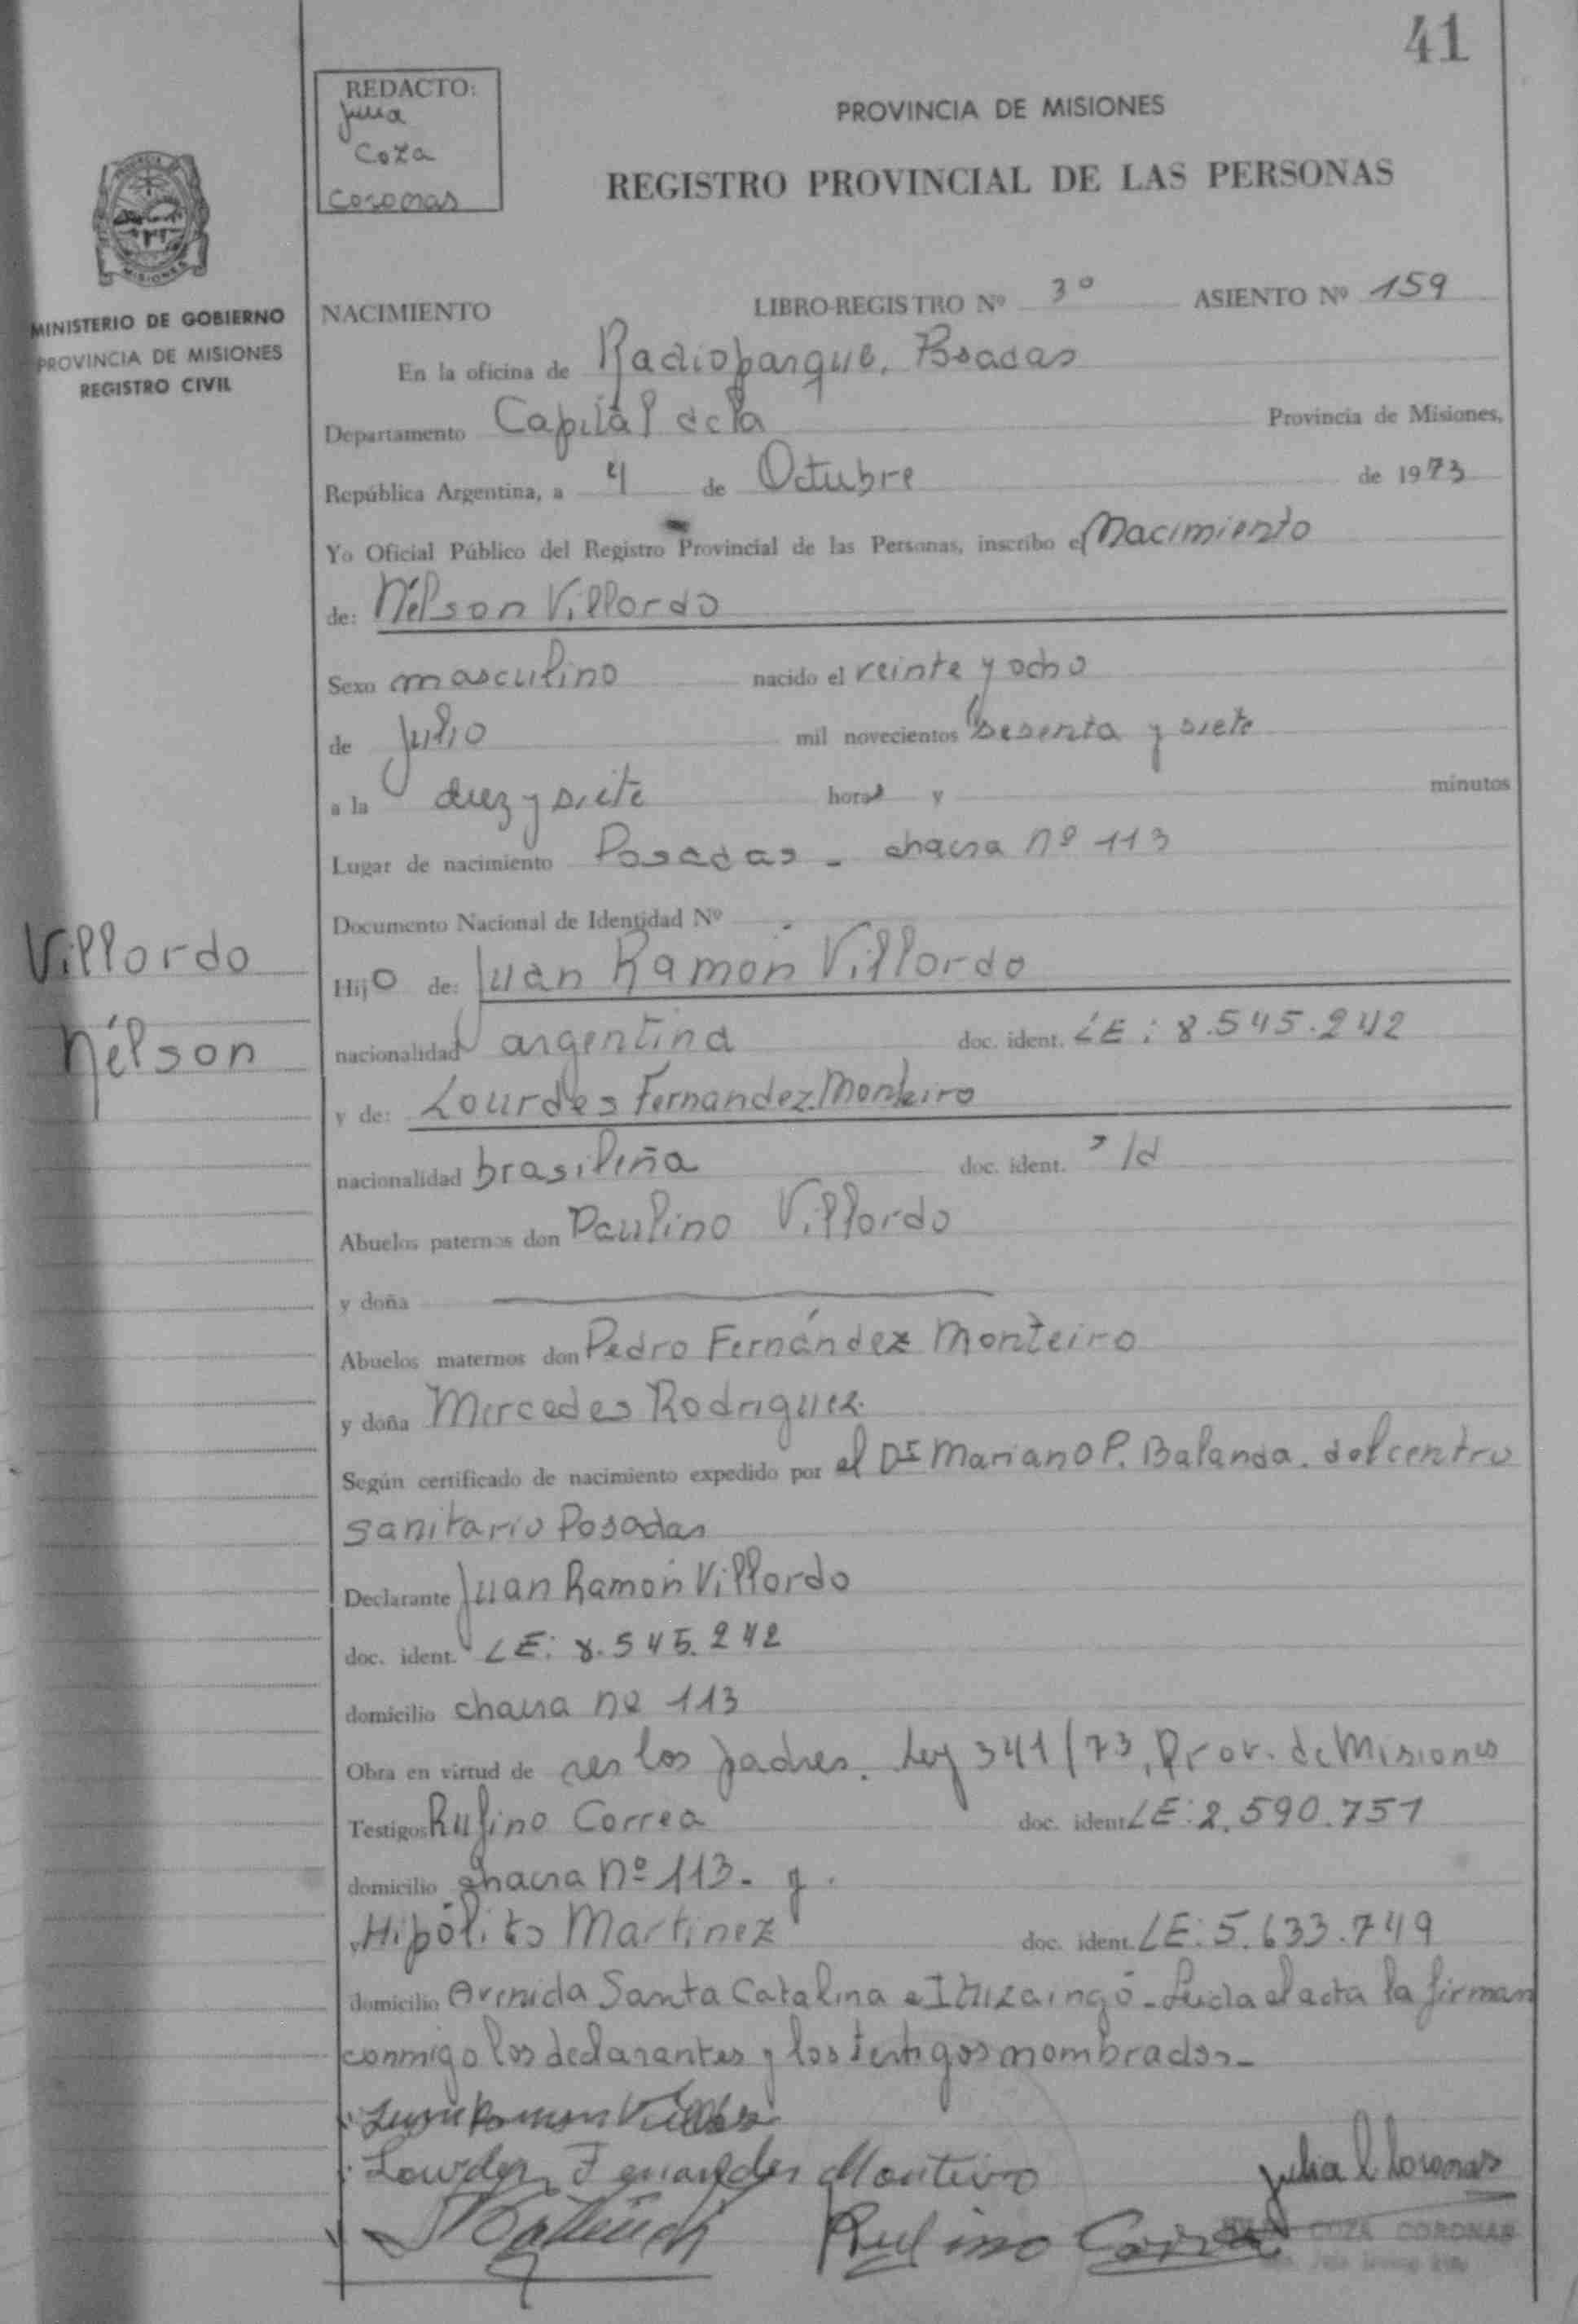 41
REDACTO:
Julia
Coza
Coronas
PROVINCIA DE MISIONES
REGISTRO PROVINCIAL DE LAS PERSONAS
MISIONES
MINISTERIO DE GOBIERNO
PROVINCIA DE MISIONES
REGISTRO CIVIL
NACIMIENTO LIBRO-REGISTRO Nº 3º ASIENTO Nº 159
En la oficina de Radioparque, Posadas
Departamento Capital de la Provincia de Misiones,
República Argentina, a 4 de Octubre de 1973
Yo Oficial Público del Registro Provincial de las Personas, inscribo el Nacimiento
de: Nélson Villordo
Sexo masculino nacido el veinte y ocho
de Julio mil novecientos sesenta y siete
a la diez y siete horas y minutos
Lugar de nacimiento Posadas - chacra nº 113
Documento Nacional de Identidad Nº -
Villordo
Nélson
Hijo de: Juan Ramón Villordo
nacionalidad argentina doc. ident. LE: 8.545.242
y de: Lourdes Fernandez Monteiro
nacionalidad brasileña doc. ident.
Abuelos paternos don Paulino Villordo
y doña
Abuelos maternos don Pedro Fernández Monteiro
y doña Mercedes Rodriguez
Según certificado de nacimiento expedido por el Dr Mariano P. Balanda. del centro
sanitario Posadas
Declarante Juan Ramón Villordo
doc. ident. LE: 8.545.242
domicilio chacra nº 113
Obra en virtud de ser los padres. Ley 341/73, Prov. de Misiones
Testigos Rufino Correa doc. ident. LE: 2.590.751
domicilio chacra Nº 113. y.
y Hipólito Martinez doc. ident. LE: 5.633.749
domicilio Avenida Santa Catalina e Ituzaingó - Leida el acta la firman
conmigo los declarantes y los testigos nombrados -
Juan Ramon Villordo
Lourdes Fernandes Monteiro
Julia C Coronas
Rufino Correa
COZA CORONAS